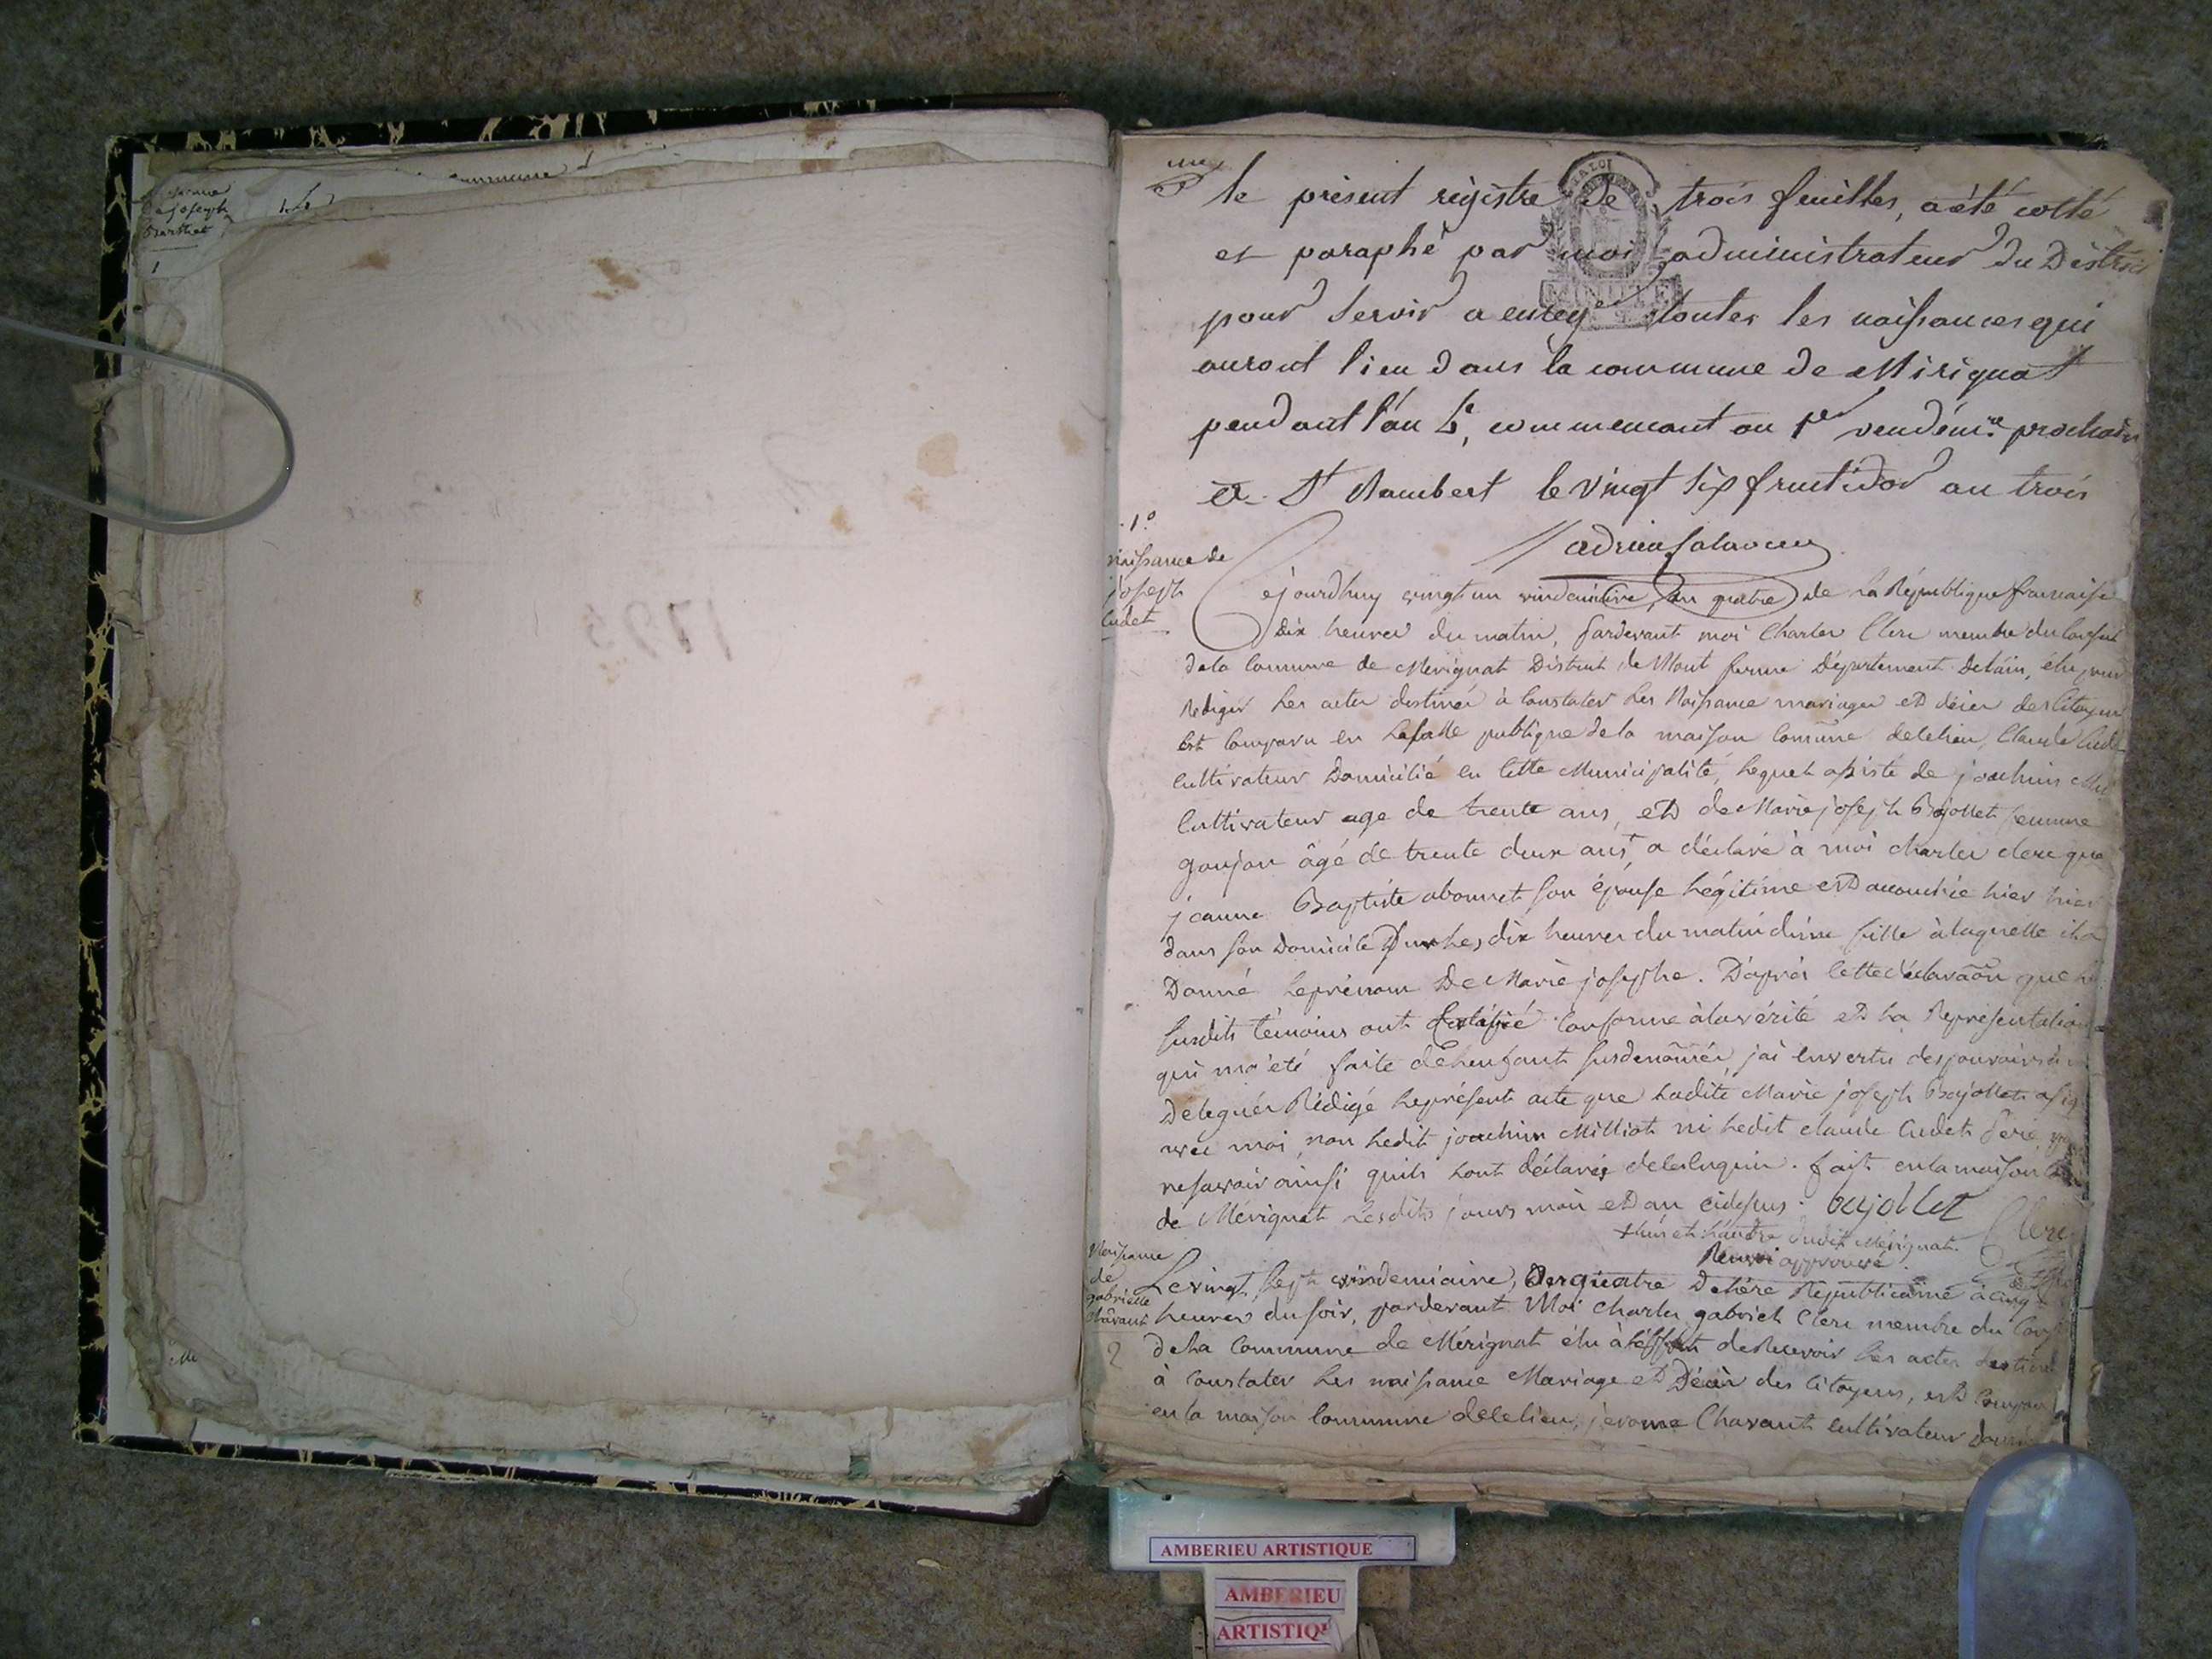 le présent régistre de trois feuilles, a été cotté
et paraphé par moi administrateur du District
pour servir a toutes les naissances qui
auront lieu dans la commune de Mirignat
pendant l'an 4e, commencant au 1er vendém.re prochain
a St Rambert le vingt six fructidor an trois
1.º
Naissance de
joseph
Cudet
Cejourdhuy vingt un vindemiaire, an quatre de la République francaise
dix heures du matin, pardevant moi Charles Clerc membre du Conseil
de la Commune de Merignat District de Mont ferme Département de lain, élu pour
Rédiger les actes destinés à Constater les Naissance mariages et décès des Citoyens
Est Comparu en la salle publique de la maison Comune de ce lieu, Claude Cudet
Cultivateur Domicilié en Cette Municipalité, lequel assisté de joachim
Cultivateur age de trente ans, et de Marie joseph Bajollet femme
goujon âgé de trente deux ans + a déclaré à moi charles clerc que
jeanne Baptiste abonnet son épouse légitime est accouchée hier
dans son Domicile Sur les dix heures du matin d'une fille à laquelle il a
Donné le prénom De Marie josephe. D'après cette déclaraõn que les
susdits témoins ont Certifié Conforme à la vérité et la Représentation
qui m'a été faite de l'enfant susdenõmée, jai en vertu des pouvoirs
Délégués Rédigé le présent acte que ladite Marie joseph Bajollet a sig
avec moi, non ledit joachim Milliat ni ledit claude Cudet père
ne savoir ainsi quils lont déclarés de ce Enquis. fait en la maison
de Mérignat Lesdits jours mois et an cidessus. bajollet
+ dudit Mérignat. Clerc
Renvoi approuvé
Naissance
de
gabrielle
Chavant
2
Le vingt sept vindemiaire, an quatre De l'ére Républicaine à cinq
heures du soir, pardevant Moi Charles gabriel Clerc membre du Cons
de la Commune de Mérignat élu à l'effet de Recevoir les actes destinés
à Constater les naissance Mariage et Décès des Citoyens, est Comparu
en la maison Commune de ce lieu, jerome Chavant cultivateur
1793
AMBERIEU ARTISTIQUE
AMBERIEU
ARTISTIQ